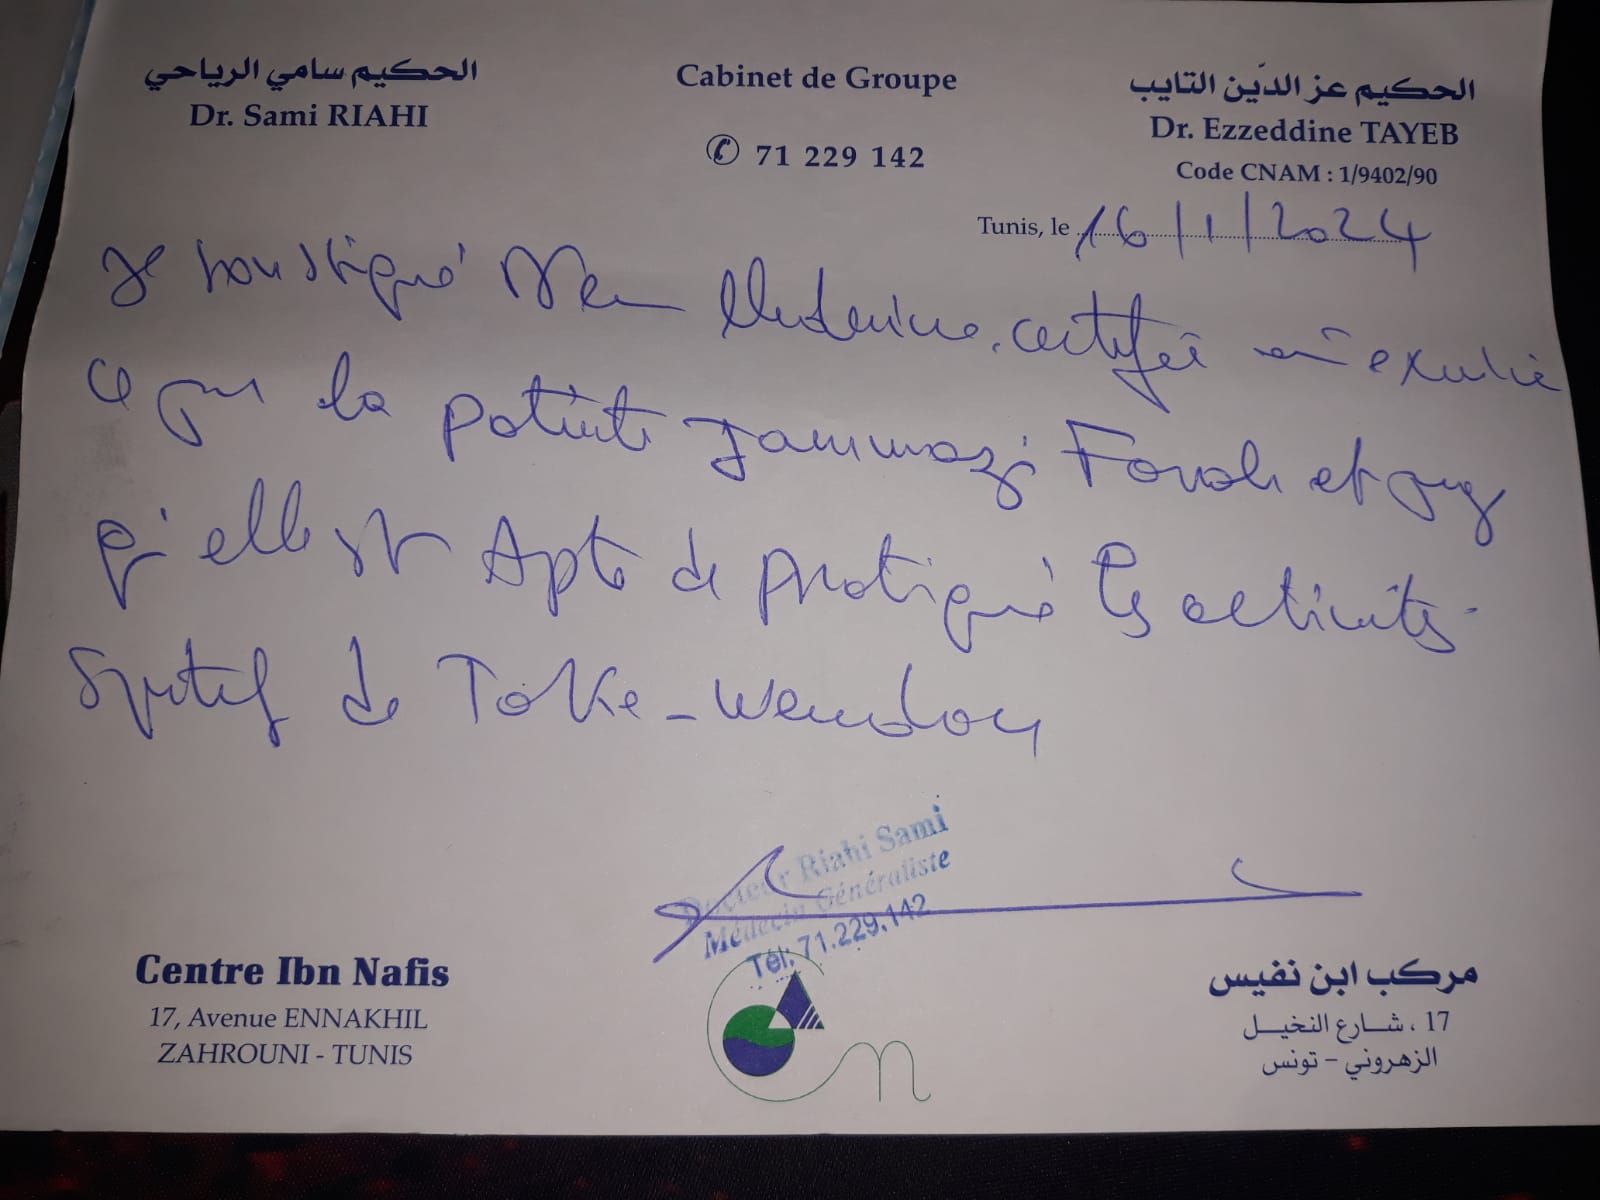 الحكيم سامي الرياحي
Dr. Sami RIAHI
Cabinet de Groupe
✆ 71 229 142
الحكيم عز الدّين التايب
Dr. Ezzeddine TAYEB
Code CNAM : 1/9402/90
Tunis, le 16/1/2024
Je soussigné certifie
ce que la patiente Jammazi Farah et que
qu'elle est Apte de pratiqué les activités
sportif de
Docteur Riahi Sami
Médecin Généraliste
Tél: 71.229.142
Centre Ibn Nafis
17, Avenue ENNAKHIL
ZAHROUNI - TUNIS
مركب ابن نفيس
17 ، شارع النخيل
الزهروني – تونس